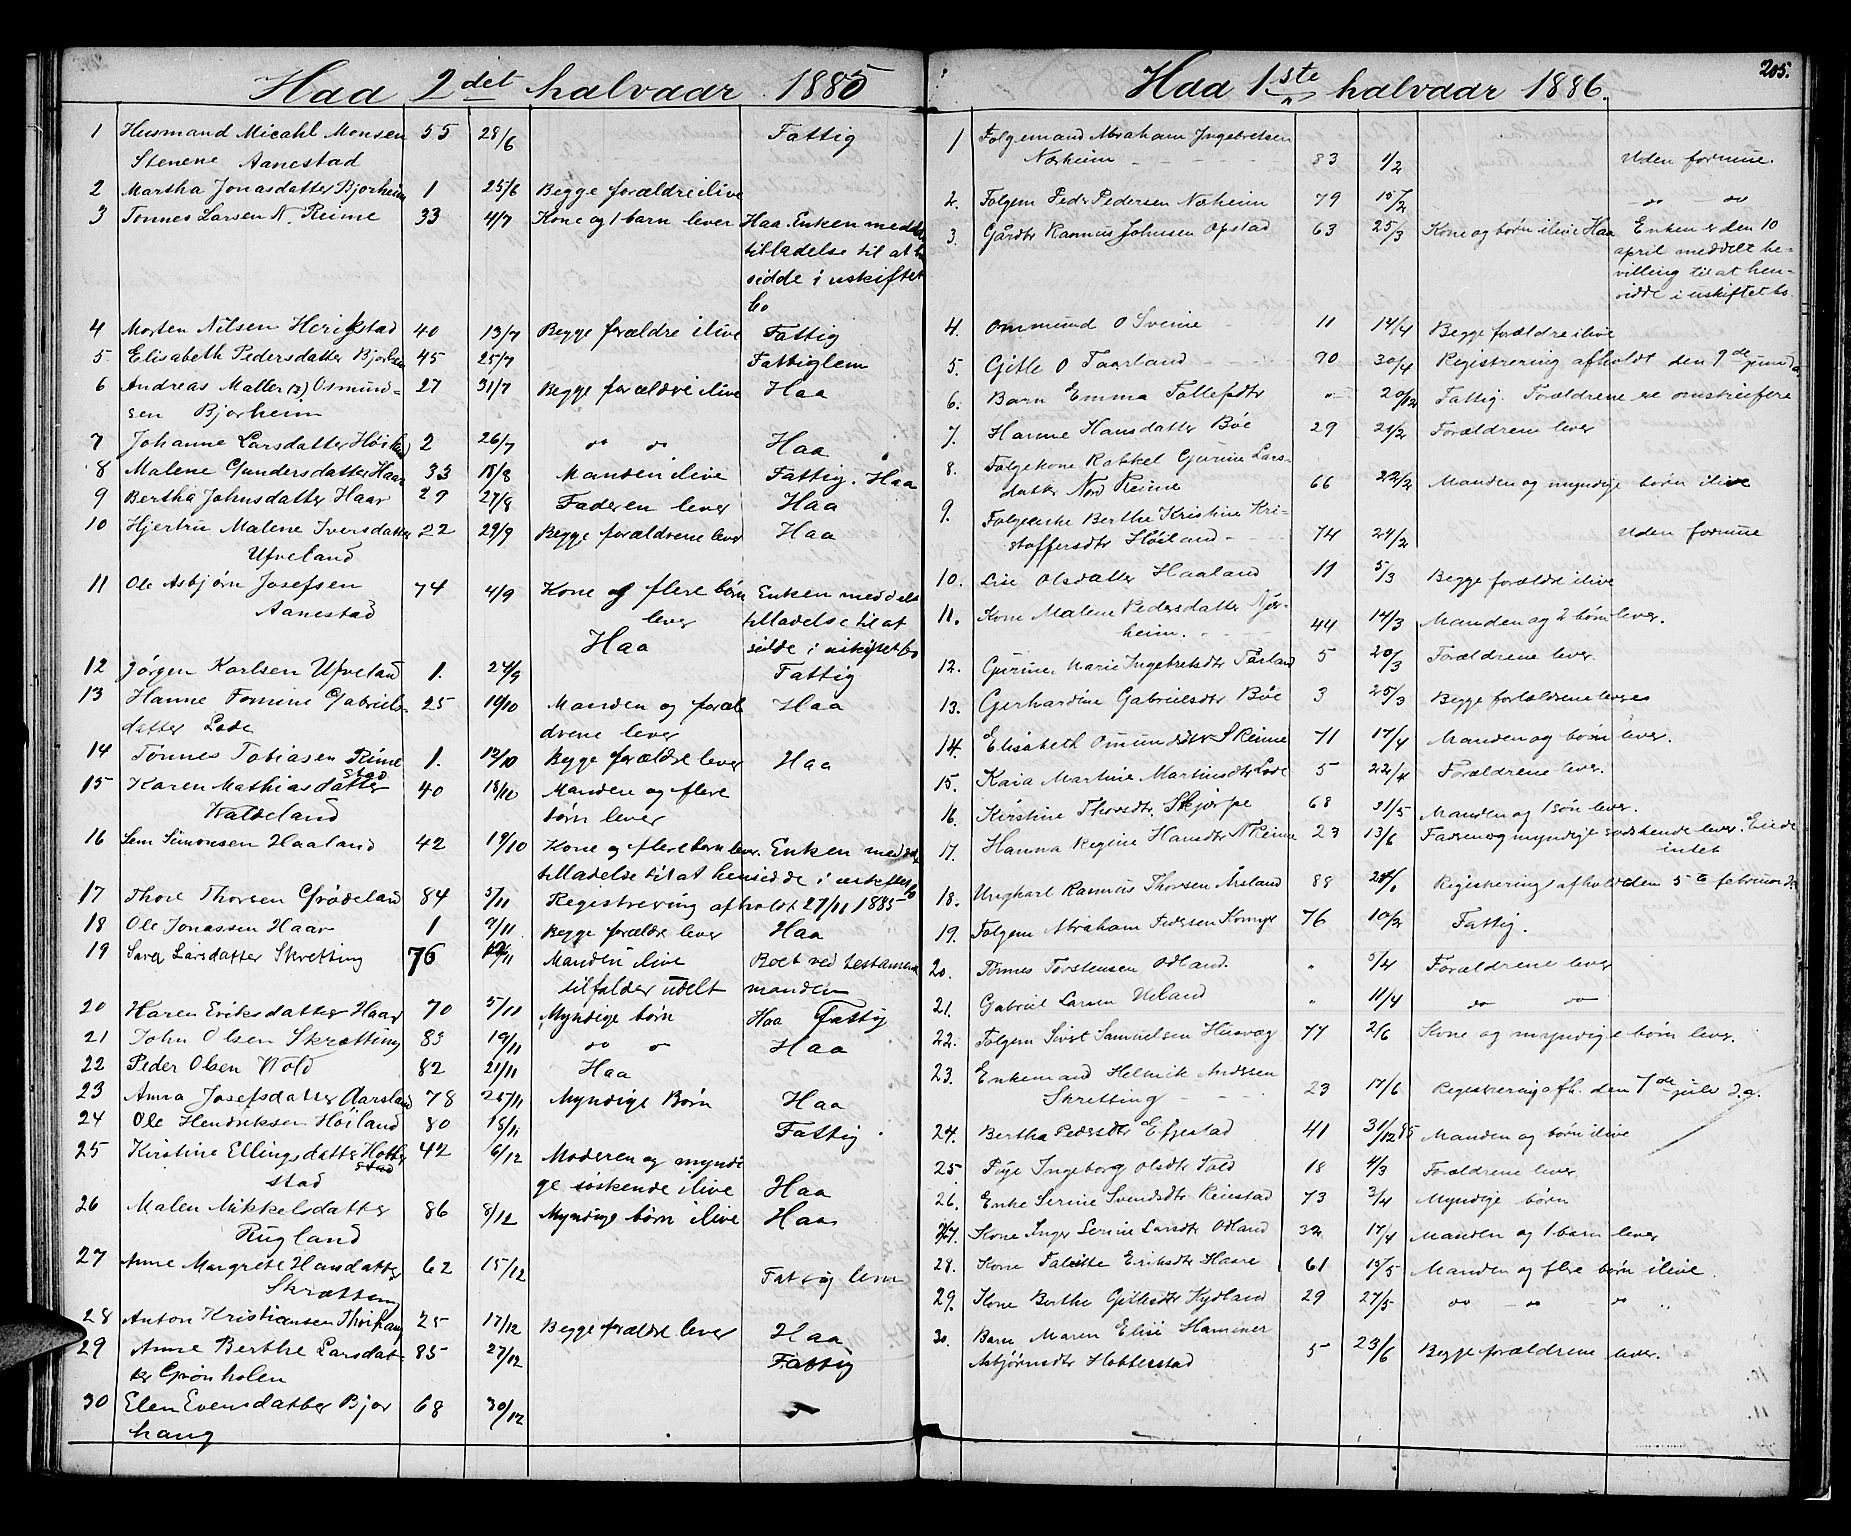 Haa 2det halvaar 1885
1 Husmand Micahl Monsen 55 28/6 Fattig
Stenene Aanestad
2 Martha Jonasdatter Bjorheim 1 25/6 Begge forældre ilive
3 Tonnes Larsen N. Reime 33 4/7 Kone og 1 barn lever Haa. Enken meddelt
tilladelse til at hen
sidde i uskiftet
bo
4 Morten Nilsen Herikstad 40 13/7 Begge forældre ilive Fattig
5 Elisabeth Pedersdatter Bjorheim 45 25/7 Fattiglem
6 Andreas Maller (?) Osmund- 27 31/7 Begge forældre ilive Haa
sen Bjorheim
7 Johanne Larsdatter 2 26/7 do do Haa
8 Malene Gundersdatter Haar 33 18/8 Manden ilive Fattig. Haa
9 Bertha Johnsdatter Haar 29 27/8 Faderen lever Haa
10 Hjertru Malene Iversdatter 22 29/9 Begge forældrene lever Haa
Ufveland
11 Ole Asbjørn Josefsen 74 4/9 Kone og flere børn Enken meddelt
Aanestad lever tilladelse til at
Haa sidde i uskiftet bo
12 Jørgen Karlsen Ufveland 1. 24/9 Fattig
13 Hanne Tomine Gabriels- 25 10/10 Manden og foræl Haa
datter Lode drene lever
14 Tønnes Tobiasen Reime 1. 12/10 Begge forældre lever Haa
15 Karen Mathiasdatter 40 18/10 Manden og flere
Waldeland børn lever
16 Sem Simonsen Haaland 42 19/10 Kone og flere børn lever. Enken meddelt
tilladelse til at hensidde i uskiftet bo
17 Thore Thorsen Grødeland 84 5/11 Registrering afholdt 27/11 1885
18 Ole Jonassen Haar 1 9/11 Begge forældre lever Haa
19 Sara Larsdatter Skretting 76 /11 Manden ilive Boet ved testamente
tilfalder udelt manden
20 Karen Eriksdatter Haar 70 5/11 Myndige børn Haa Fattig
21 John Olsen Skrætting 83 19/11 do do Haa
22 Peder Olsen Wold 82 21/11 Haa
23 Anna Josefsdatter Aarsland 78 25/11 Myndige Børn Haa
24 Ole Hendriksen Høiland 80 18/11 Fattig.
25 Kirstine Ellingsdatter Hobber 42 6/12 Moderen og myndi
stad ge søskende ilive Haa
26 Malen Mikkelsdatter 86 8/12 Myndige børn ilive Haa
Rugland
27 Anne Margrete Hansdatter 62 15/12 Fattig lem
Skrætten
28 Anton Kristiansen 25 17/12 Begge forældre lever Haa
29 Anne Berthe Larsdat- 85 27/12 Fattig
ter Grønholen
30 Elen Evensdatter Bjor 68 30/12
haug
205.
Haa 1ste halvaar 1886.
1 Folgemand Abraham Ingebretsen
Nærheim 83 1/2 Uden formue.
2. Folgem Peder Pedersen Næheim 79 15/2 do do
3. Gårdbr Rasmus Johnsen Opstad 63 25/3 Kone og børn ilive Haa Enken er den 10
april meddelt be-
villing til at hen-
sidde i uskiftet bo
4. Ommund O Sveine 11 14/4 Begge forældre ilive
5. Gitle O Taarland 70 30/4 Registrering afholdt den 9de juni d.a.
6. Barn Emma Tollefsdtr " 20/12 Fattig. Forældrene ere omstreifere
7. Hanne Hansdatter Bøe 29 21/2 Forældrene lever
8. Folgekone Rakkel Gurine Lars-
datter Nord Reime 66 22/2 Manden og myndige børn ilive
9. Folgeenke Berthe Kristine Kri-
stoffersdtr Høiland 74 24/2 Uden formue
10. Lise Olsdatter Haaland 11 5/3 Begge forældre ilive
11. Kone Malene Pedersdatter Njær-
heim. 44 14/3 Manden og 2 børn lever.
12. Gurine Marie Ingebretsdtr Tårland 5 20/3 Forældrene lever
13. Gerhardine Gabrielsdtr Bøe 3 25/3 Begge forældrene leves
14. Elisabeth Omundsdtr S Reime 71 17/4 Manden og børn lever.
15. Kaia Martine Martinsdtr Lode 5 22/4 Forældrene lever.
16. Kirstine Thorsdtr. Skjærpe 68 31/5 Manden og 1 søn lever.
17. Hanna Regine Hansdtr N Reime 23 13/6 Faderen og myndige søskende lever. Eiede
intet
18. Ungkarl Rasmus Thorsen Årsland 88 Registrering afholdt den 5te februar d.a.
19. Folgem Abraham Pedersen 76 10/2 Fattig.
20. Tønnes Torstensen Odland. " 5/4 Forældrene lever
21. Gabriel Larsen Ueland " 11/4 do do
22. Folgem Sivert Samuelsen Husvog 77 2/6 Kone og myndige børn lever.
23. Enkemand Helmik Andssen
Skretting 23 17/6 Registrering afh. den 7de juli d.a.
24. Bertha Pedersdtr Efjestad 41 31/12 85 Manden og børn ilive
25. Pige Ingeborg Olsdtr Vold 18 4/3 Forældrene lever.
26. Enke Serine Svendsdtr Reiestad 73 3/4 Myndige børn
27. Kone Inger Serine Larsdtr Odland 32 17/4 Manden og 1 barn lever
28. Kone Eriksdtr Haare 61 15/5 Manden og flere børn ilive.
29. Kone Berthe Gitlesdtr Kydland 29 27/5 do do do "
30. Barn Maren Elise Hammer
Asbjørnsdtr Hobberstad 5 23/6 Begge forældrene lever.